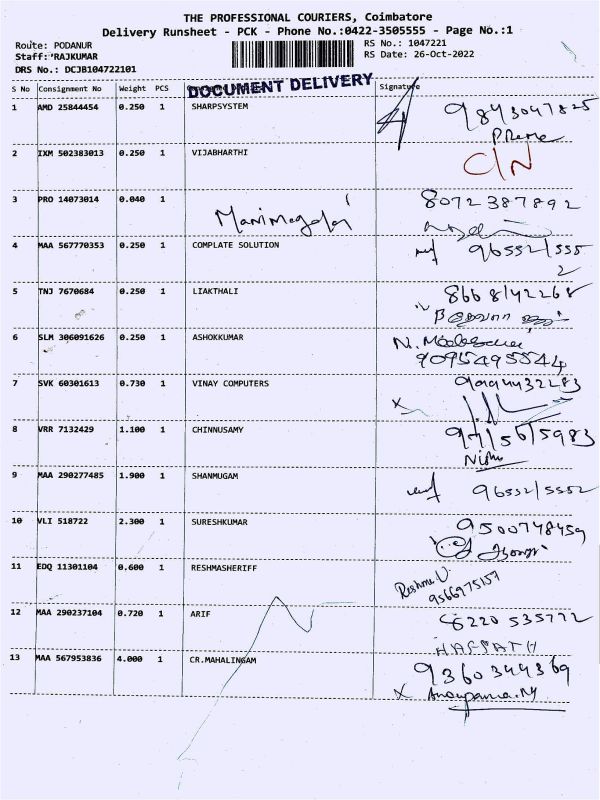 THE PROFESSIONAL COURIERS, Coimbatore
Delivery Runsheet - PCK - Phone No.:0422-3505555 - Page No.:1
Route: PODANUR RS No.: 1047221
Staff: RAJKUMAR RS Date: 26-Oct-2022
DRS No.: DCJB104722101
DOCUMENT DELIVERY
S No Consignment No Weight PCS Signature
1 AMD 25844454 0.250 1 SHARPSYSTEM 9843047825
Prema
2 IXM 502383013 0.250 1 VIJABHARTHI C/N
3 PRO 14073014 0.040 1 8072387892
Manimegalai
4 MAA 567770353 0.250 1 COMPLATE SOLUTION 96552/555
2
5 TNJ 7670684 0.250 1 LIAKTHALI 8668142268
6 SLM 306091626 0.250 1 ASHOKKUMAR
9095495544
7 SVK 60301613 0.730 1 VINAY COMPUTERS
8 VRR 7132429 1.100 1 CHINNUSAMY
9 MAA 290277485 1.900 1 SHANMUGAM 96552/5552
10 VLI 518722 2.300 1 SURESHKUMAR 9500748459
11 EDQ 11301104 0.600 1 RESHMASHERIFF Reshma U
9566975157
12 MAA 290237104 0.720 1 ARIF 86220 535772
HAFSATH
13 MAA 567953836 4.000 1 CR.MAHALINGAM 9360344369
X Anoupama.N